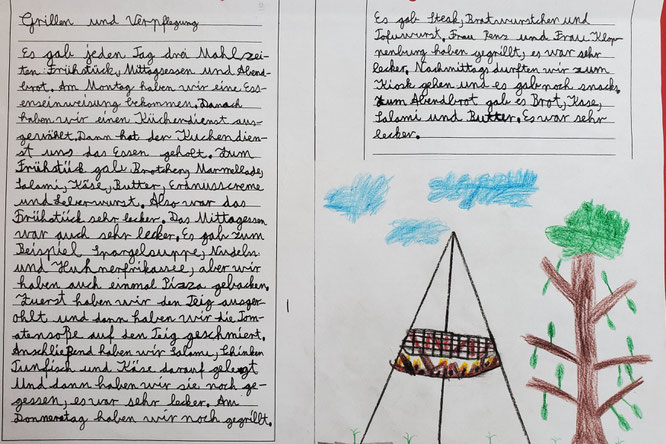 Grillen und Verpflegung
Es gab jeden Tag drei Mahlzei-
ten Frühstück, Mittagsessen und Abend-
brot. Am Montag haben wir eine Ess-
enseinweisung bekommen. Danach
haben wir einen Küchendienst aus-
gewählt. Dann hat der Kuchendien-
st uns das Essen geholt. Zum
Frühstück gab Brötchen, Marmellade,
Salami, Käse, Butter, Erdnusscreme
und Leberwurst. Also war das
Frühstück sehr lecker. Das Mittagessen
war auch sehr lecker. Es gab zum
Beispiel Spargelsuppe, Nudeln
und Huhnerfrikassee, aber wir
haben auch einmal Pizza gebacken.
Zuerst haben wir den Teig ausger-
ohlt und dann haben wir die Tom-
atensoße auf den Taig geschmiert.
Anschließend haben wir Salami, Schinken
Tunfisch und Käse darauf gelegt
Und dann haben wir sie noch ge-
gessen, es war sehr lecker. Am
Donnerstag haben wir noch gegrillt.
Es gab Steak, Bratwürstchen und
Tofuwurst. Frau Renz und Frau Klop-
nenburg haben gegrillt, es war sehr
lecker. Nachmittags durften wir zum
Kiosk gehen und es gab noch snacks.
Zum Abendbrot gab es Brot, Käse,
Salami und Butter. Es war sehr
lecker.